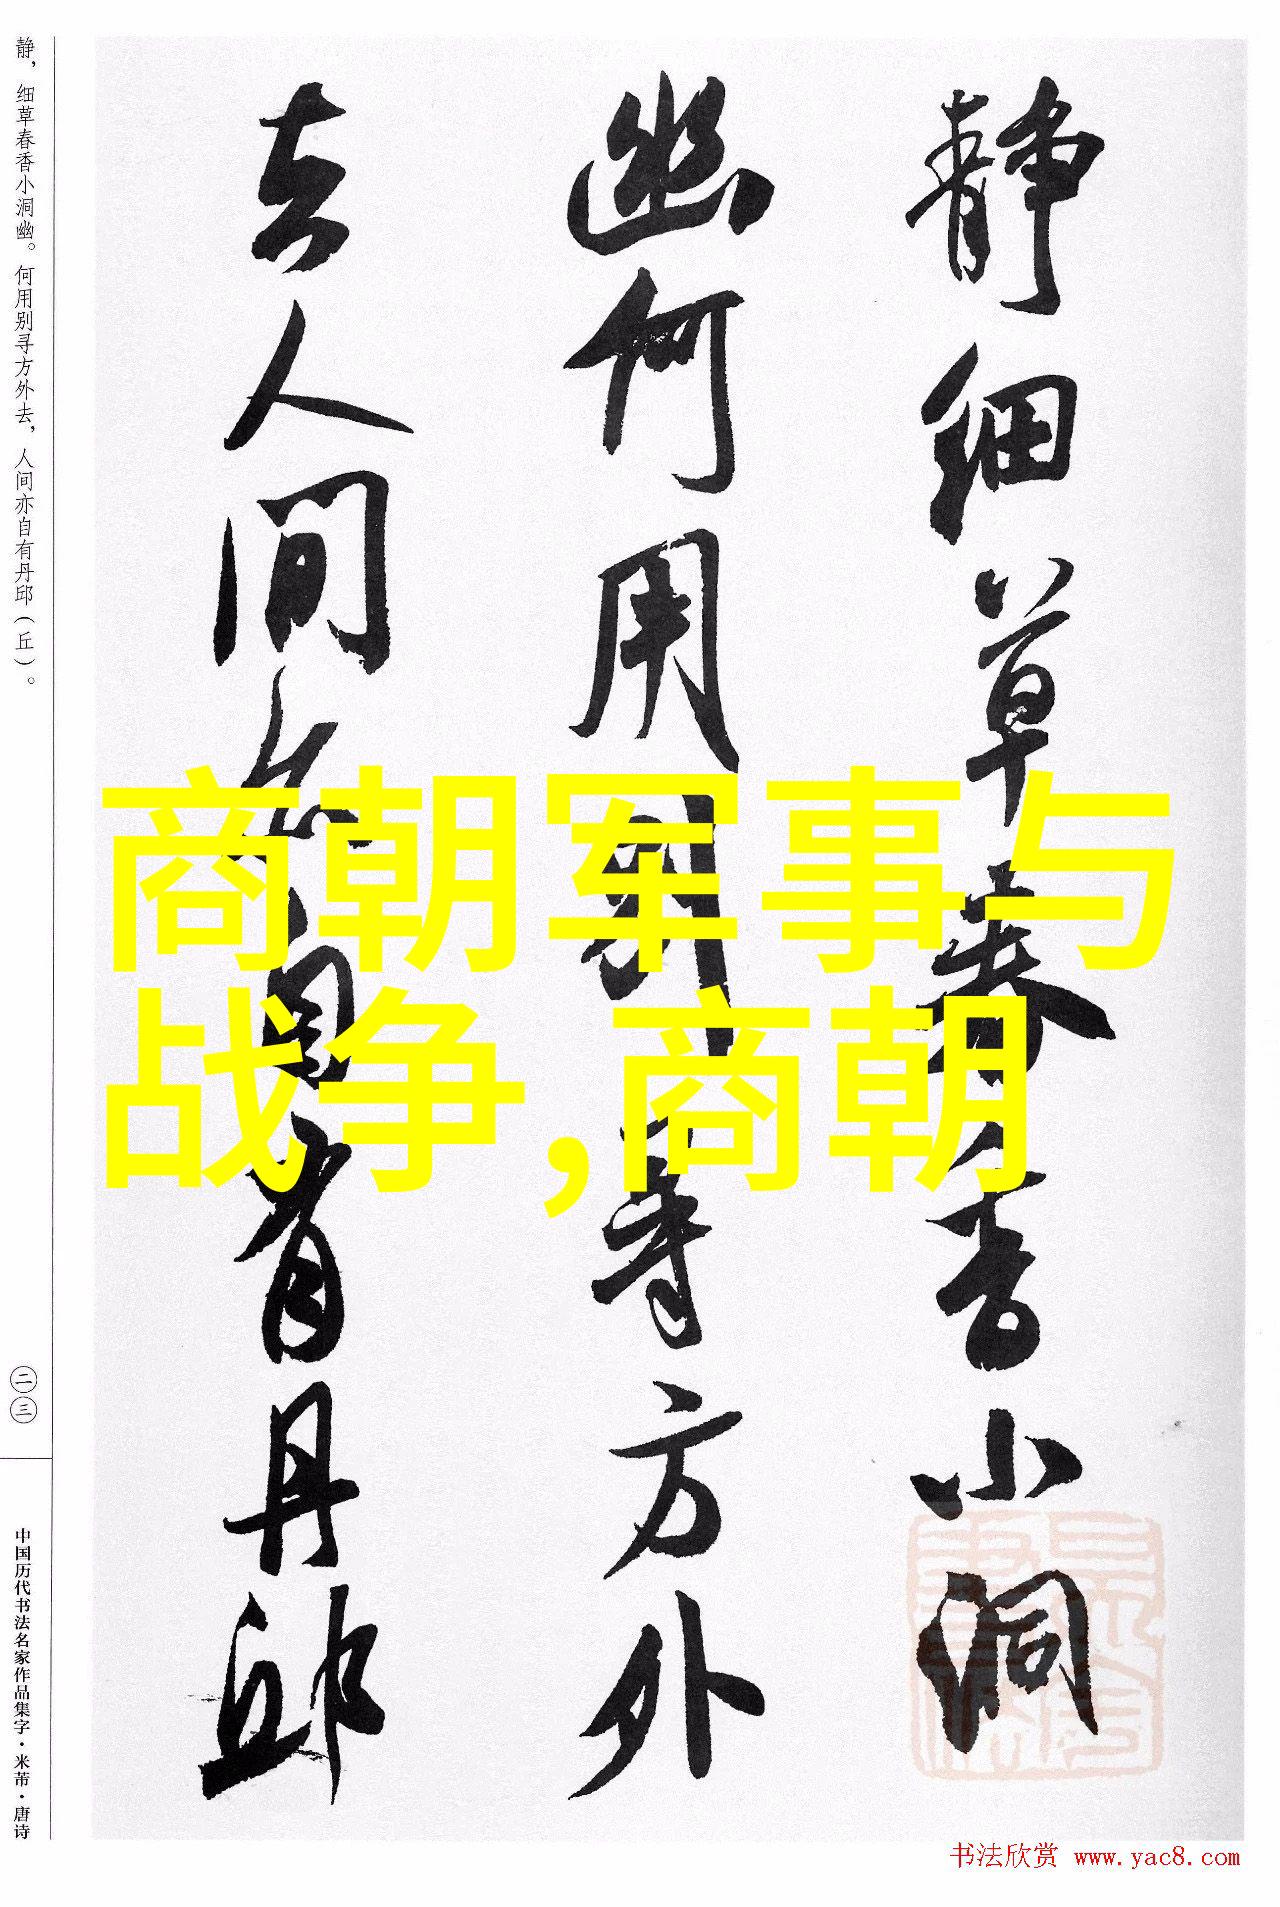 静细草春香小洞
幽何用别寻方外
去人间亦自有丹邱
商朝军事与
战争,商朝
静，细草春香小洞幽。何用别寻方外去，人间亦自有丹邱（丘）。
二三
中国历代书法名家作品集字·米芾·唐诗
书法欣赏 www.yac8.com